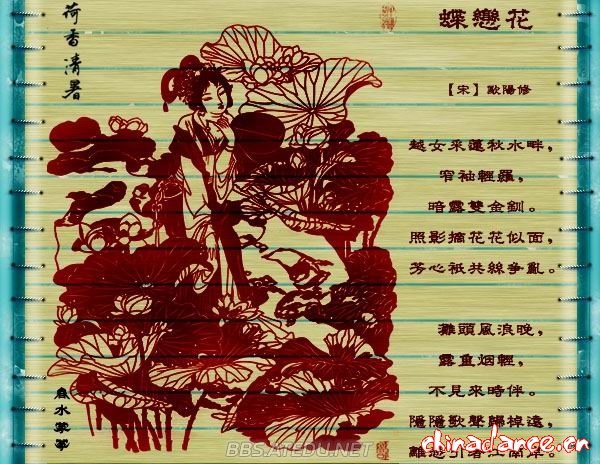 荷香清暑
蝶戀花
【宋】歐陽修
越女采蓮秋水畔，
窄袖輕羅，
暗露雙金釧。
照影摘花花似面，
芳心祇共絲爭亂。
灘頭風浪晚，
露重烟輕，
不見來時伴。
隱隱歌聲歸棹遠，
離愁
BBS.ATEDU.NET
chinadance.cn